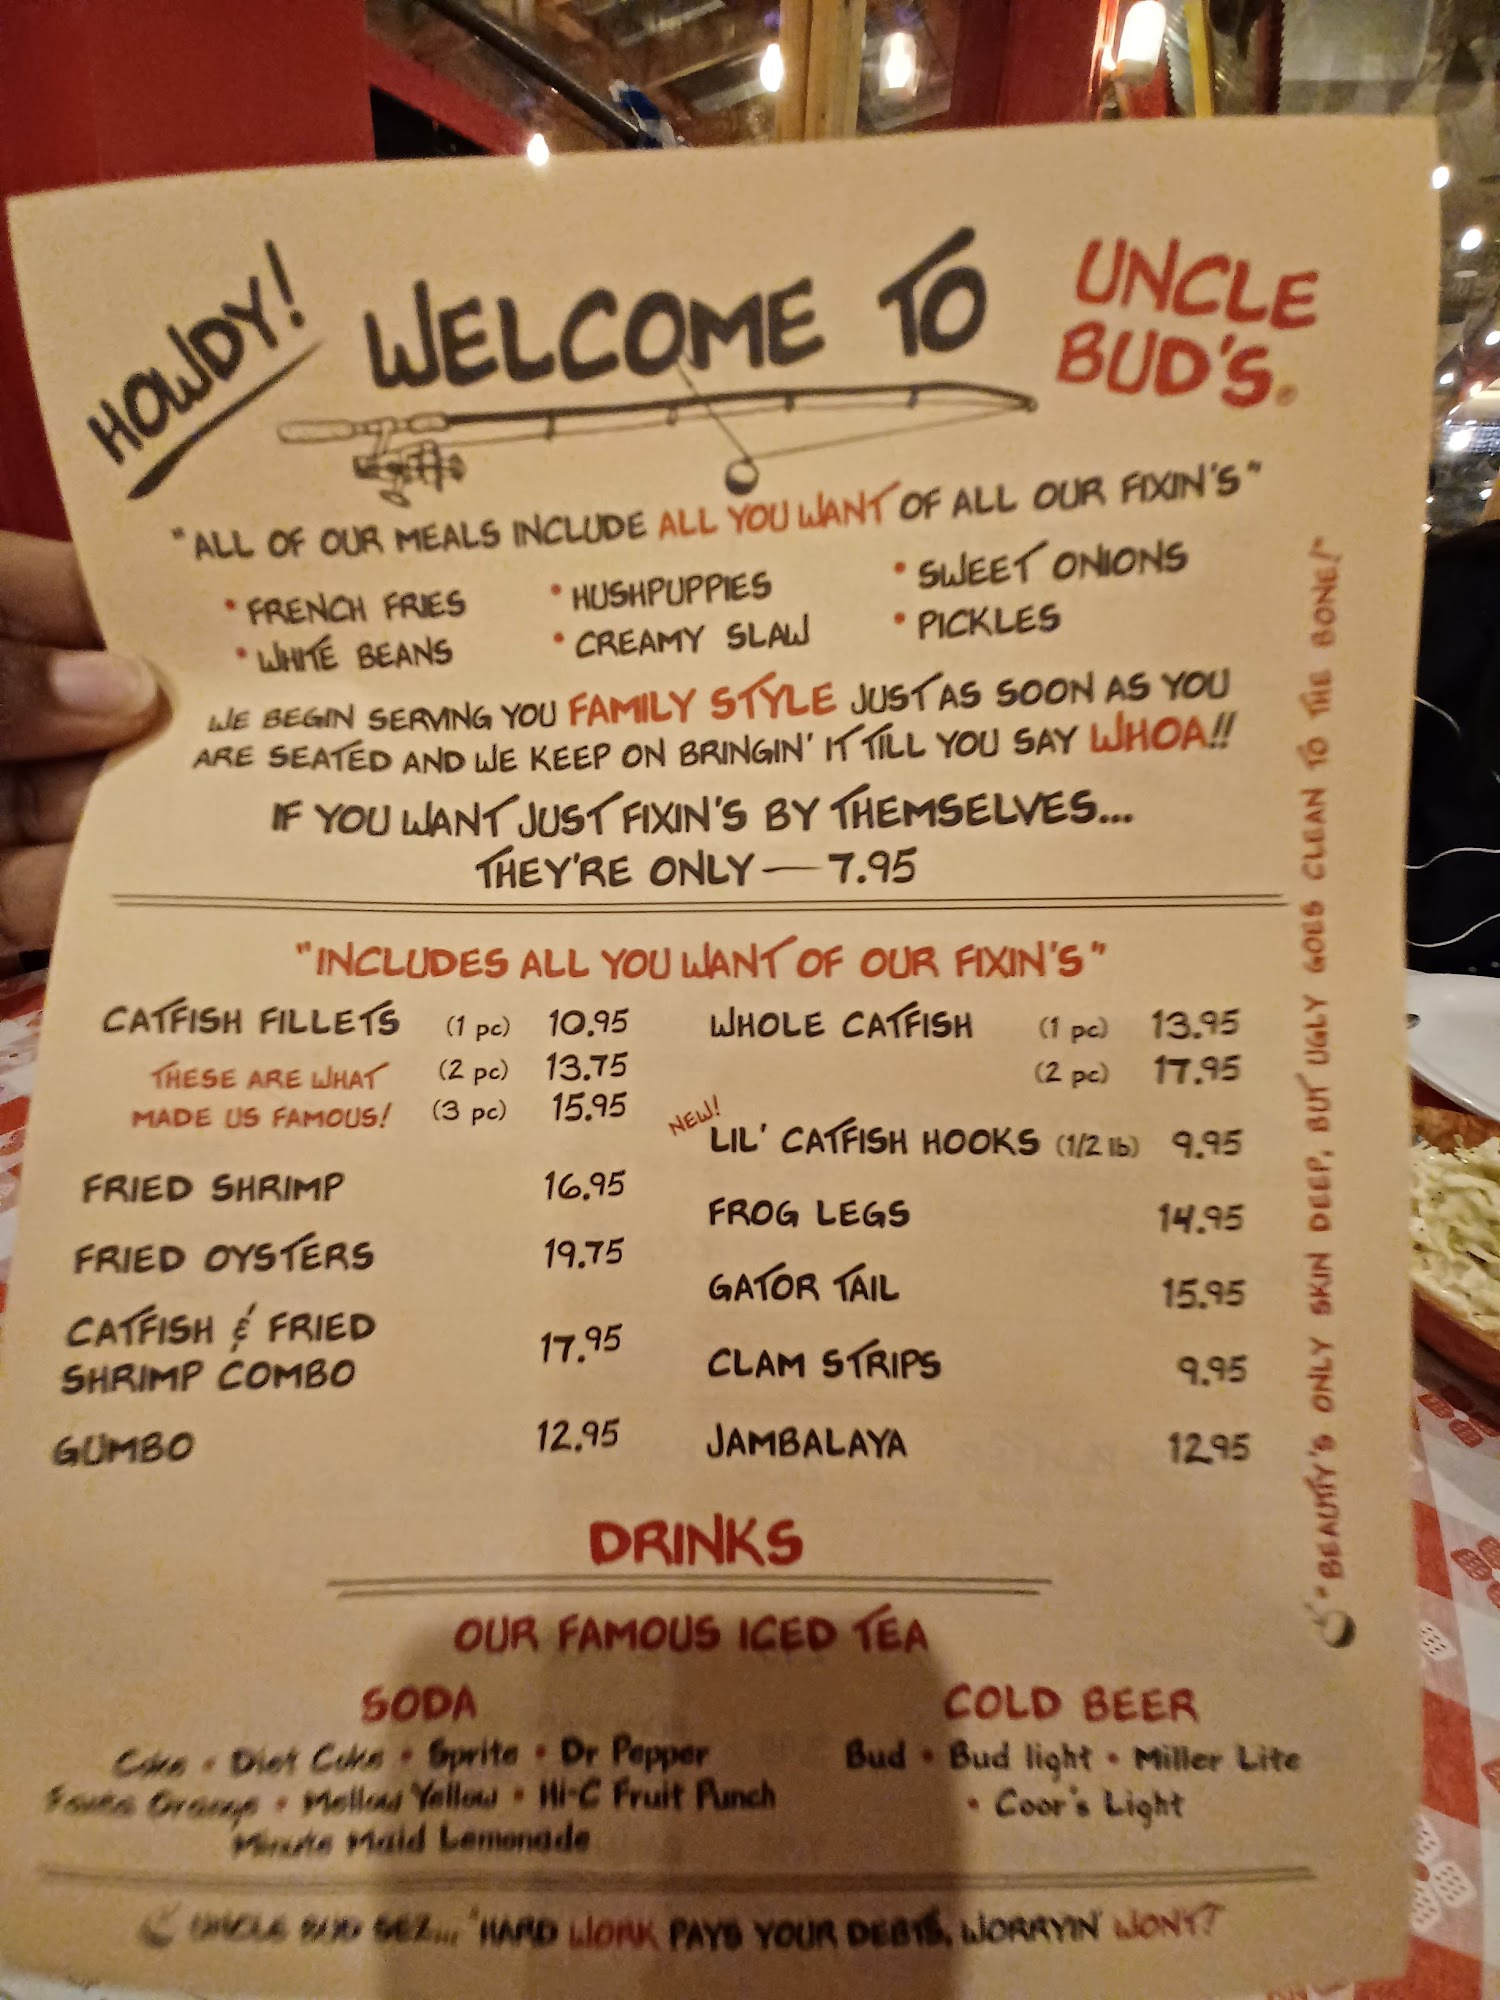 HOWDY! WELCOME TO UNCLE BUD'S®
"ALL OF OUR MEALS INCLUDE ALL YOU WANT OF ALL OUR FIXIN'S"
• FRENCH FRIES • HUSHPUPPIES • SWEET ONIONS
• WHITE BEANS • CREAMY SLAW • PICKLES
WE BEGIN SERVING YOU FAMILY STYLE JUST AS SOON AS YOU
ARE SEATED AND WE KEEP ON BRINGIN' IT TILL YOU SAY WHOA!!
IF YOU WANT JUST FIXIN'S BY THEMSELVES...
THEY'RE ONLY — 7.95
"INCLUDES ALL YOU WANT OF OUR FIXIN'S"
CATFISH FILLETS (1 pc) 10.95
THESE ARE WHAT (2 pc) 13.75
MADE US FAMOUS! (3 pc) 15.95
FRIED SHRIMP 16.95
FRIED OYSTERS 19.75
CATFISH & FRIED
SHRIMP COMBO 17.95
GUMBO 12.95
WHOLE CATFISH (1 pc) 13.95
(2 pc) 17.95
NEW! LIL' CATFISH HOOKS (1/2 lb) 9.95
FROG LEGS 14.95
GATOR TAIL 15.95
CLAM STRIPS 9.95
JAMBALAYA 12.95
DRINKS
OUR FAMOUS ICED TEA
SODA
Coke • Diet Coke • Sprite • Dr Pepper
Fanta Orange • Mellow Yellow • Hi-C Fruit Punch
Minute Maid Lemonade
COLD BEER
Bud • Bud light • Miller Lite
• Coor's Light
UNCLE BUD SEZ... "HARD WORK PAYS YOUR DEBTS, WORRYIN' WON'T"
"BEAUTY'S ONLY SKIN DEEP, BUT UGLY GOES CLEAN TO THE BONE!"